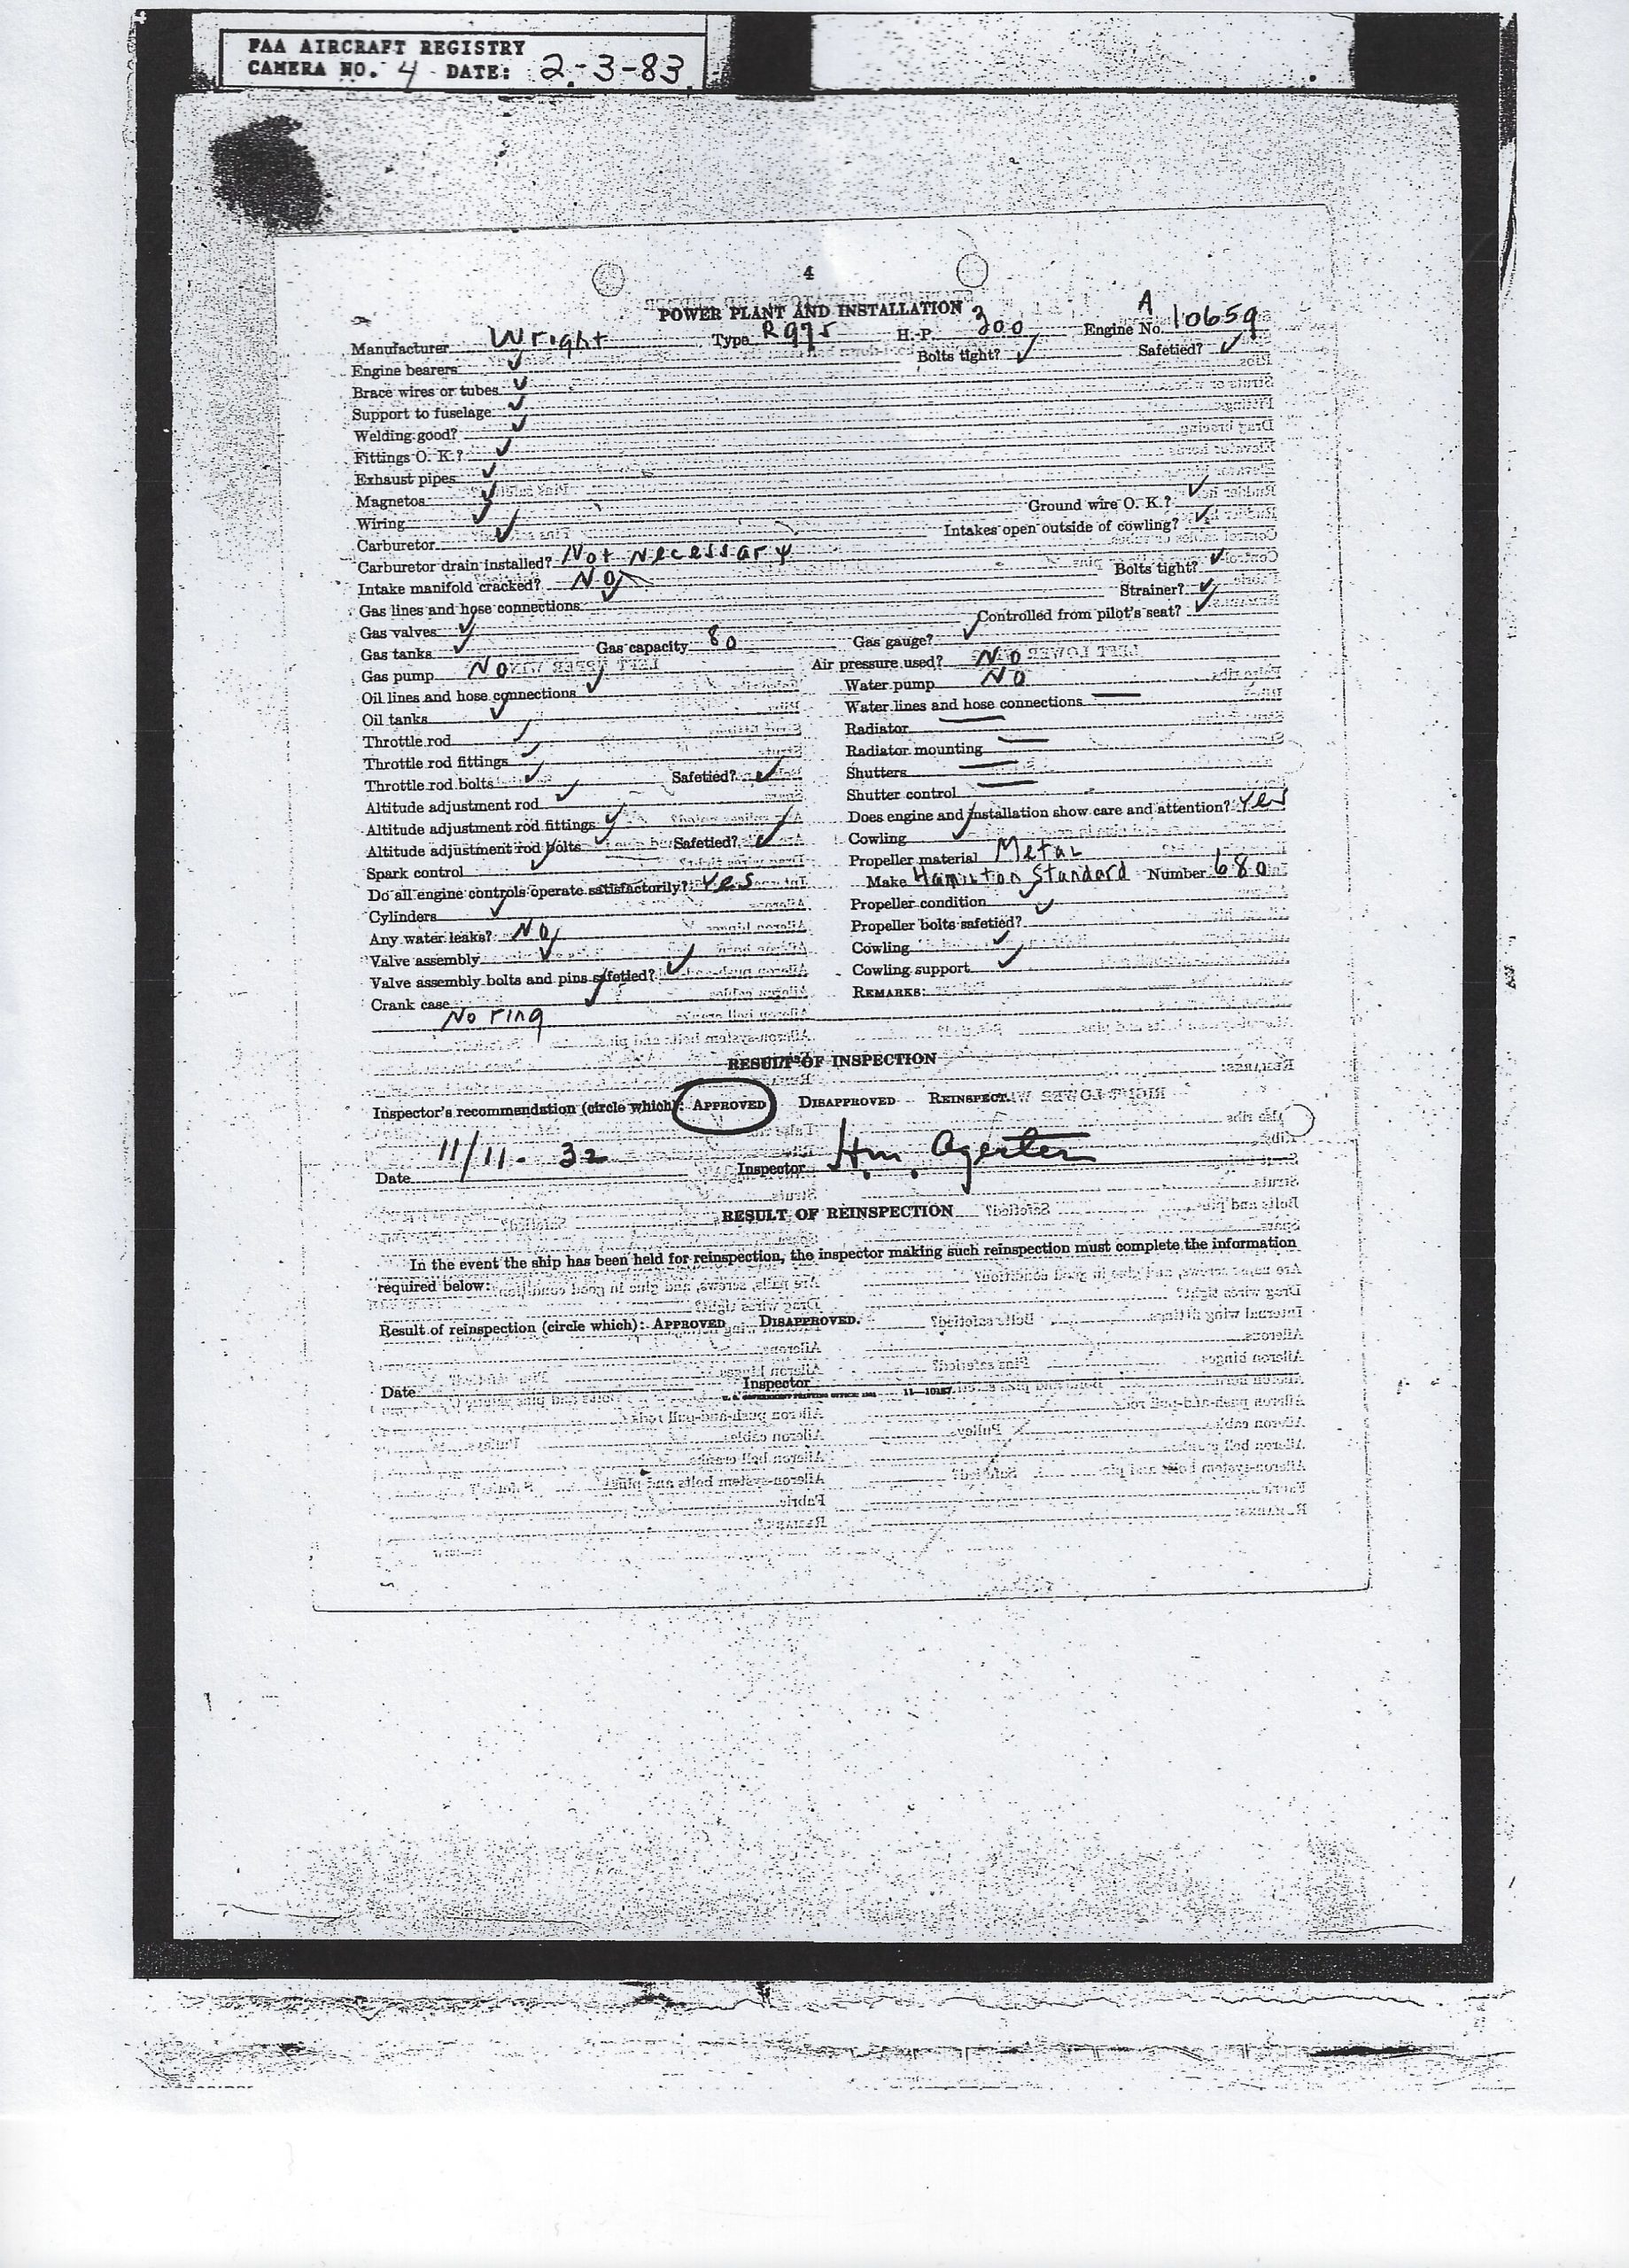 FAA AIRCRAFT REGISTRY
CAMERA NO. 4 DATE: 2-3-83
4
POWER PLANT AND INSTALLATION
Manufacturer Wright Type R975 H.P. 300 Engine No. A 10659
Engine bearers ✓ Bolts tight? ✓ Safetied? ✓
Brace wires or tubes ✓
Support to fuselage ✓
Welding good? ✓
Fittings O. K.? ✓
Exhaust pipes ✓
Magnetos ✓
Wiring ✓ Ground wire O. K.? ✓
Carburetor ✓ Intakes open outside of cowling? ✓
Carburetor drain installed? Not Necessary
Intake manifold cracked? No Bolts tight? ✓
Gas lines and hose connections ✓ Strainer? ✓
Gas valves ✓ Controlled from pilot's seat? ✓
Gas tanks ✓ Gas capacity 80 Gas gauge? ✓
Gas pump No Air pressure used? No
Oil lines and hose connections ✓ Water pump No
Oil tanks ✓ Water lines and hose connections —
Throttle rod ✓ Radiator —
Throttle rod fittings ✓ Radiator mounting —
Throttle rod bolts ✓ Safetied? ✓ Shutters —
Altitude adjustment rod ✓ Shutter control —
Altitude adjustment rod fittings ✓ Does engine and installation show care and attention? Yes
Altitude adjustment rod bolts ✓ Safetied? ✓ Cowling ✓
Spark control ✓ Propeller material Metal
Do all engine controls operate satisfactorily? Yes Make Hamilton Standard Number 680
Cylinders ✓ Propeller condition ✓
Any water leaks? No Propeller bolts safetied? ✓
Valve assembly ✓ Cowling ✓
Valve assembly bolts and pins safetied? ✓ Cowling support ✓
Crank case ✓ REMARKS:
No ring
RESULT OF INSPECTION
Inspector's recommendation (circle which): APPROVED DISAPPROVED REINSPECT.
Date 11/11. 32 Inspector H.m. Agerter
RESULT OF REINSPECTION
In the event the ship has been held for reinspection, the inspector making such reinspection must complete the information
required below:
Result of reinspection (circle which): APPROVED DISAPPROVED.
Date Inspector